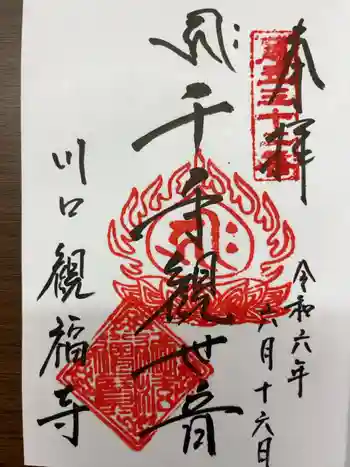 奉拝
令和六年
六月十六日
千手観世音
川口 観福寺